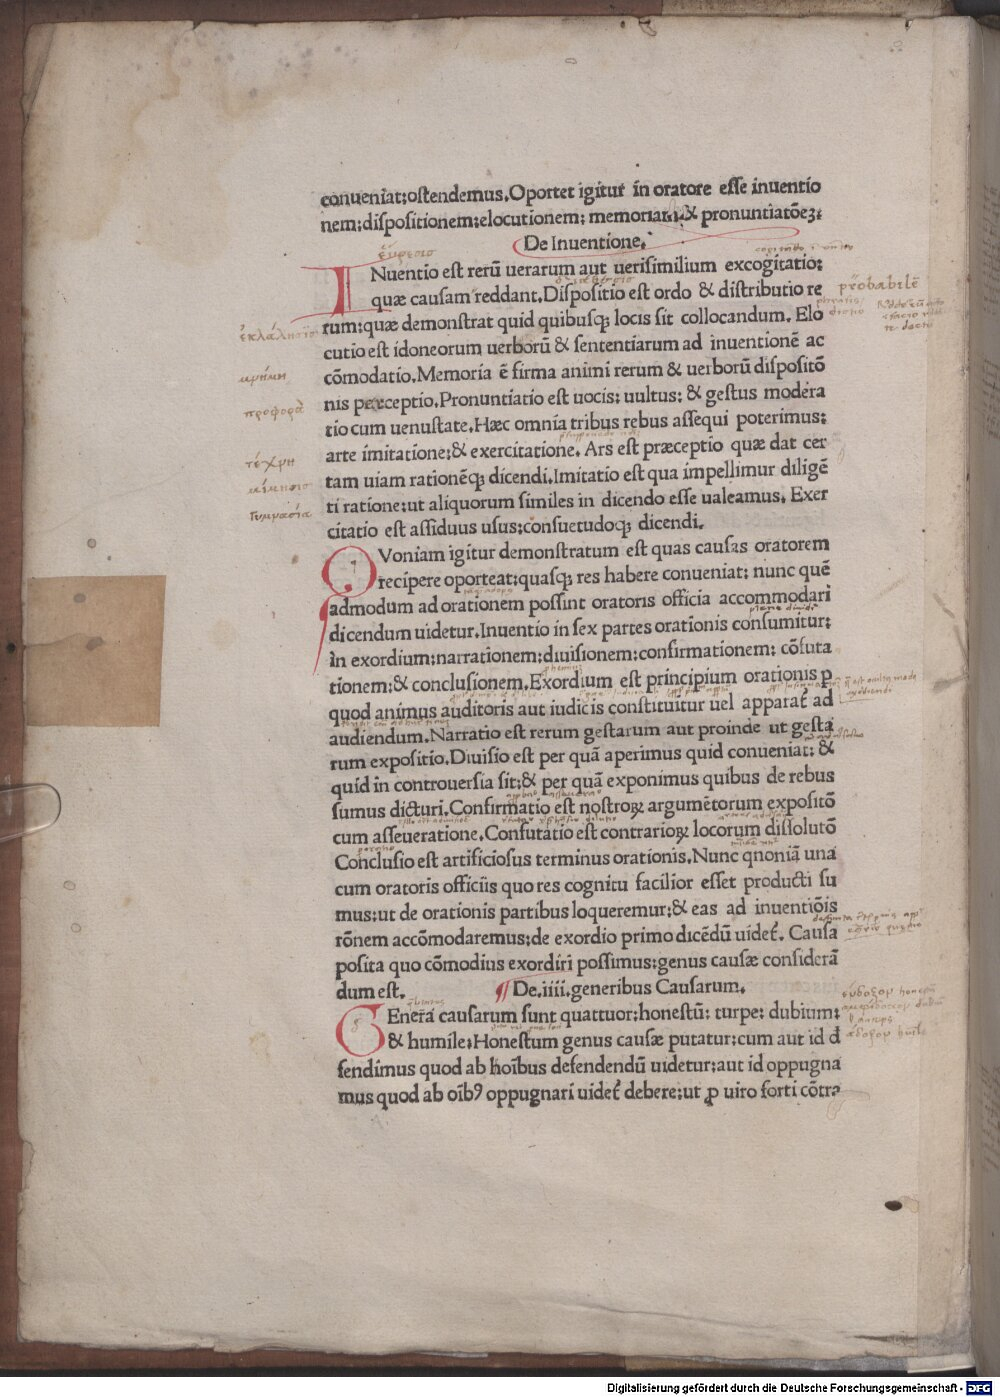 conueniat:ostendemus.Oportet igitur in oratore esse inuentio
nem:dispositionem:elocutionem: memoriam:& pronuntiatōeꝫ:
De Inuentione.
εὕρεσισ
INuentio est rerū uerarum aut uerisimilium excogitatio:
quæ causam reddant.Dispositio est ordo & distributio re
probabilē
rum:quæ demonstrat quid quibusqꝫ locis sit collocandum. Elo
cutio est idoneorum uerborū & sententiarum ad inuentionē ac
cōmodatio.Memoria ē firma animi rerum & uerborū dispositō
nis perceptio.Pronuntiatio est uocis: uultus: & gestus modera
προφορὰ
tio cum uenustate.Hæc omnia tribus rebus assequi poterimus:
arte imitatione:& exercitatione. Ars est præceptio quæ dat cer
τέχνη
tam uiam rationēqꝫ dicendi.Imitatio est qua impellimur diligē
μίμησισ
ti ratione:ut aliquorum similes in dicendo esse ualeamus. Exer
Γυμνασία
citatio est assiduus usus:consuetudoqꝫ dicendi.
QVoniam igitur demonstratum est quas causas oratorem
recipere oporteat:quasqꝫ res habere conueniat: nunc quē
admodum ad orationem possint oratoris officia accommodari
dicendum uidetur.Inuentio in sex partes orationis consumitur:
in exordium:narrationem:diuisionem:confirmationem: cōfuta
tionem:& conclusionem.Exordium est principium orationis p
quod animus auditoris aut iudicis constituitur uel apparať ad
audiendum.Narratio est rerum gestarum aut proinde ut gesta
rum expositio.Diuisio est per quā aperimus quid conueniat: &
quid in controuersia sit:& per quā exponimus quibus de rebus
sumus dicturi.Confirmatio est nostroꝝ argumētorum expositō
cum asseueratione.Confutatio est contrarioꝝ locorum dissolutō
Conclusio est artificiosus terminus orationis.Nunc qnoniā una
cum oratoris officiis quo res cognitu facilior esset producti su
mus:ut de orationis partibus loqueremur:& eas ad inuentiōis
rōnem accōmodaremus:de exordio primo dicēdū uideť. Causa
posita quo cōmodius exordiri possimus:genus causæ considerā
dum est. ¶De.iiii.generibus Causarum.
GEnera causarum sunt quattuor:honestū: turpe: dubium:
& humile:Honestum genus causæ putatur:cum aut id d
fendimus quod ab hoībus defendendū uidetur:aut id oppugna
mus quod ab oībꝰ oppugnari uideť debere:ut ꝓ uiro forti cōtra
Digitalisierung gefördert durch die Deutsche Forschungsgemeinschaft - DFG